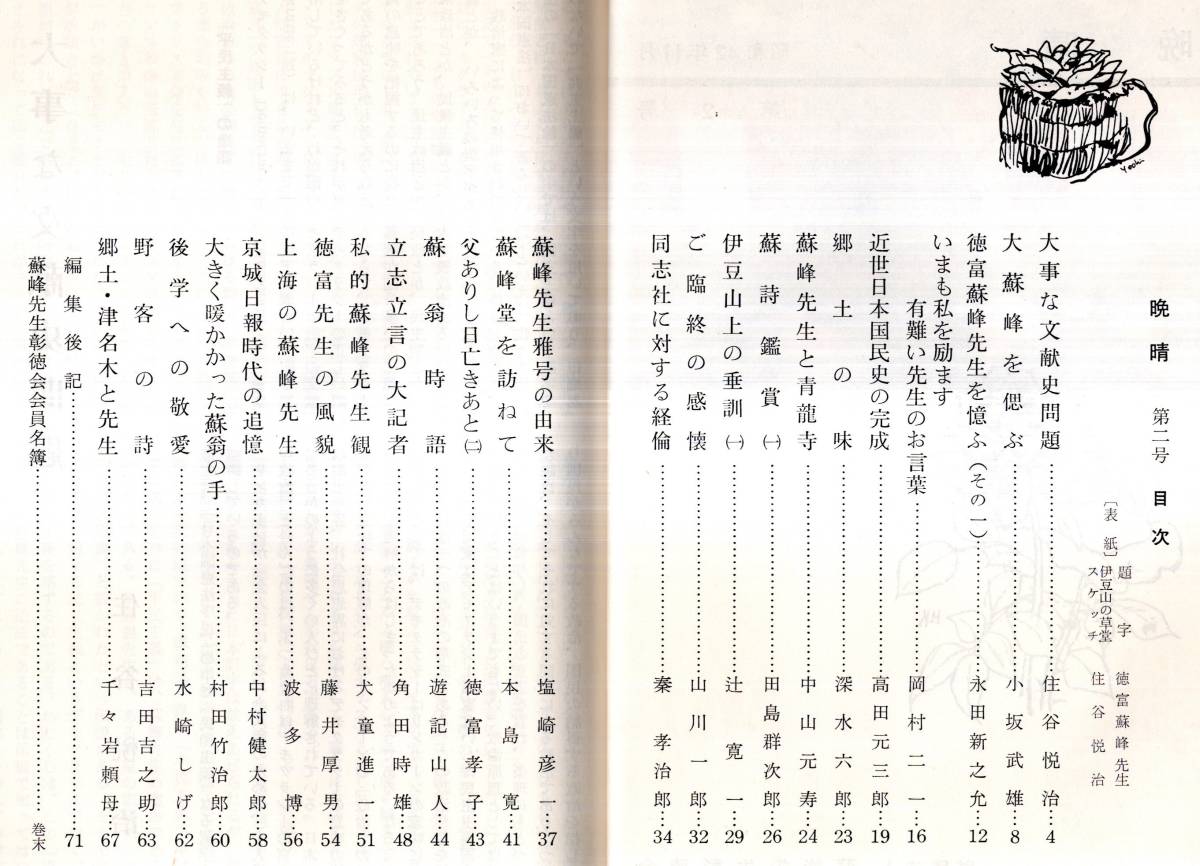 晩晴 第二号 目次
題字 徳富蘇峰先生
〔表紙〕伊豆山の草堂スケッチ 住谷悦治
大事な文献史問題……住谷悦治…4
大蘇峰を偲ぶ……小坂武雄…8
徳富蘇峰先生を憶ふ(その一)……永田新之允…12
いまも私を励ます
有難い先生のお言葉……岡村二一…16
近世日本国民史の完成……高田元三郎…19
郷土の味……深水六郎…23
蘇峰先生と青龍寺……中山元寿…24
蘇詩鑑賞㈠……田島群次郎…26
伊豆山上の垂訓㈠……辻寛一…29
ご臨終の感懐……山川一郎…32
同志社に対する経倫……秦孝治郎…34
Yoshi
蘇峰先生雅号の由来……塩崎彦一…37
蘇峰堂を訪ねて……本島寛…41
父ありし日亡きあと㈡……徳富孝子…43
蘇翁時語……遊記山人…44
立志立言の大記者……角田時雄…48
私的蘇峰先生観……犬童進一…51
徳富先生の風貌……藤井厚男…54
上海の蘇峰先生……波多博…56
京城日報時代の追憶……中村健太郎…58
大きく暖かかった蘇翁の手……村田竹治郎…60
後学への敬愛……水崎しげ…62
野客の詩……吉田吉之助…63
郷土・津名木と先生……千々岩頼母…67
編集後記……71
蘇峰先生彰徳会会員名簿……巻末